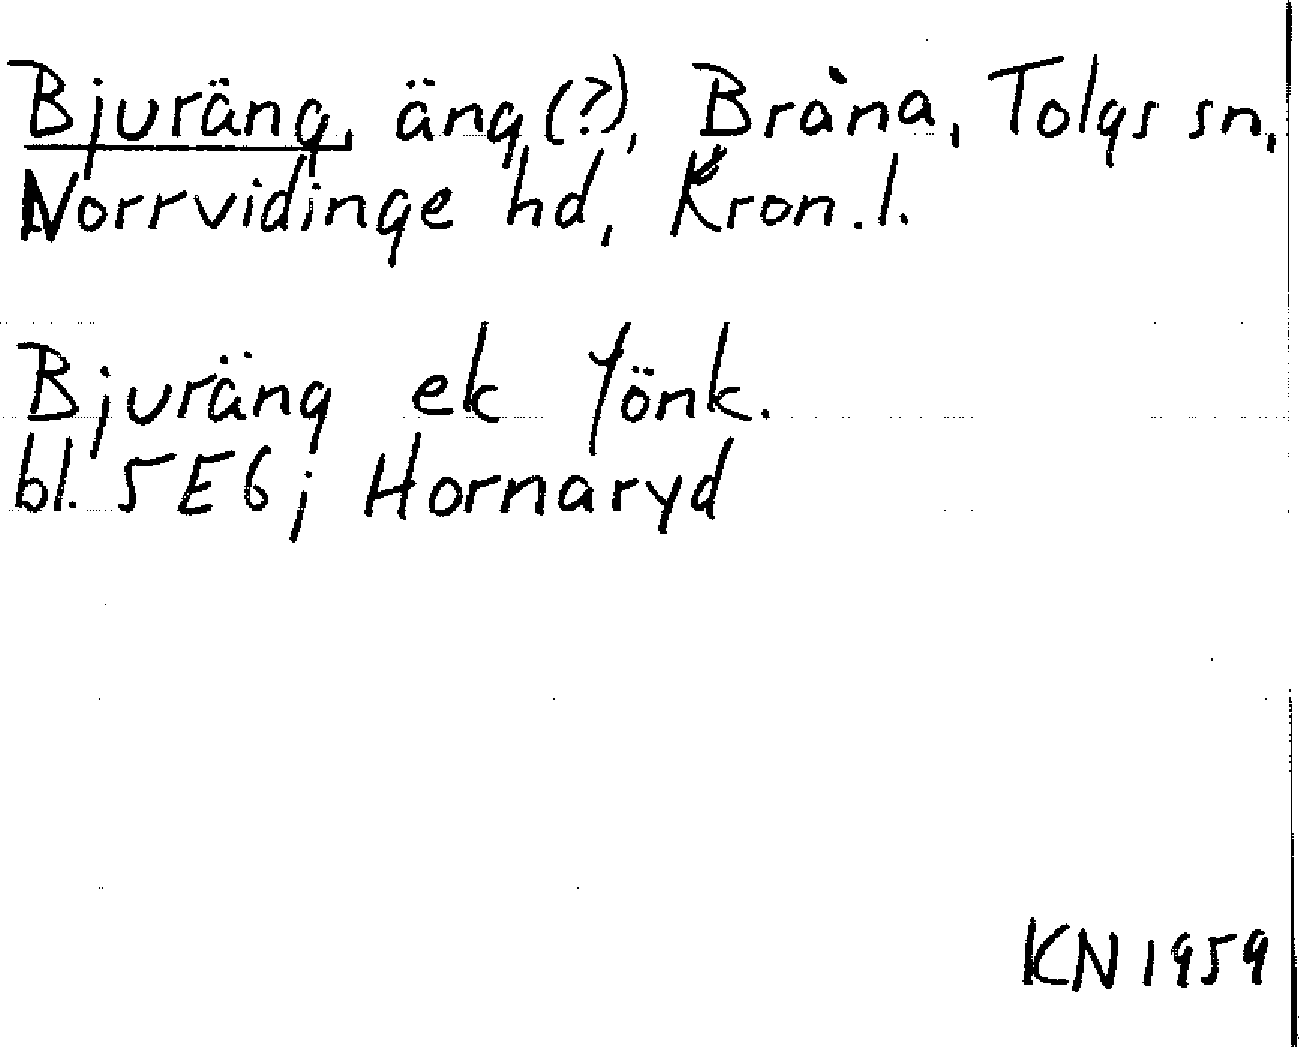 Bjuräng, äng (?), Bråna, Tolgs sn,
Norrvidinge hd, Kron. l.
Bjuräng ek Jönk.
bl. 5E6; Hornaryd
KN 1959